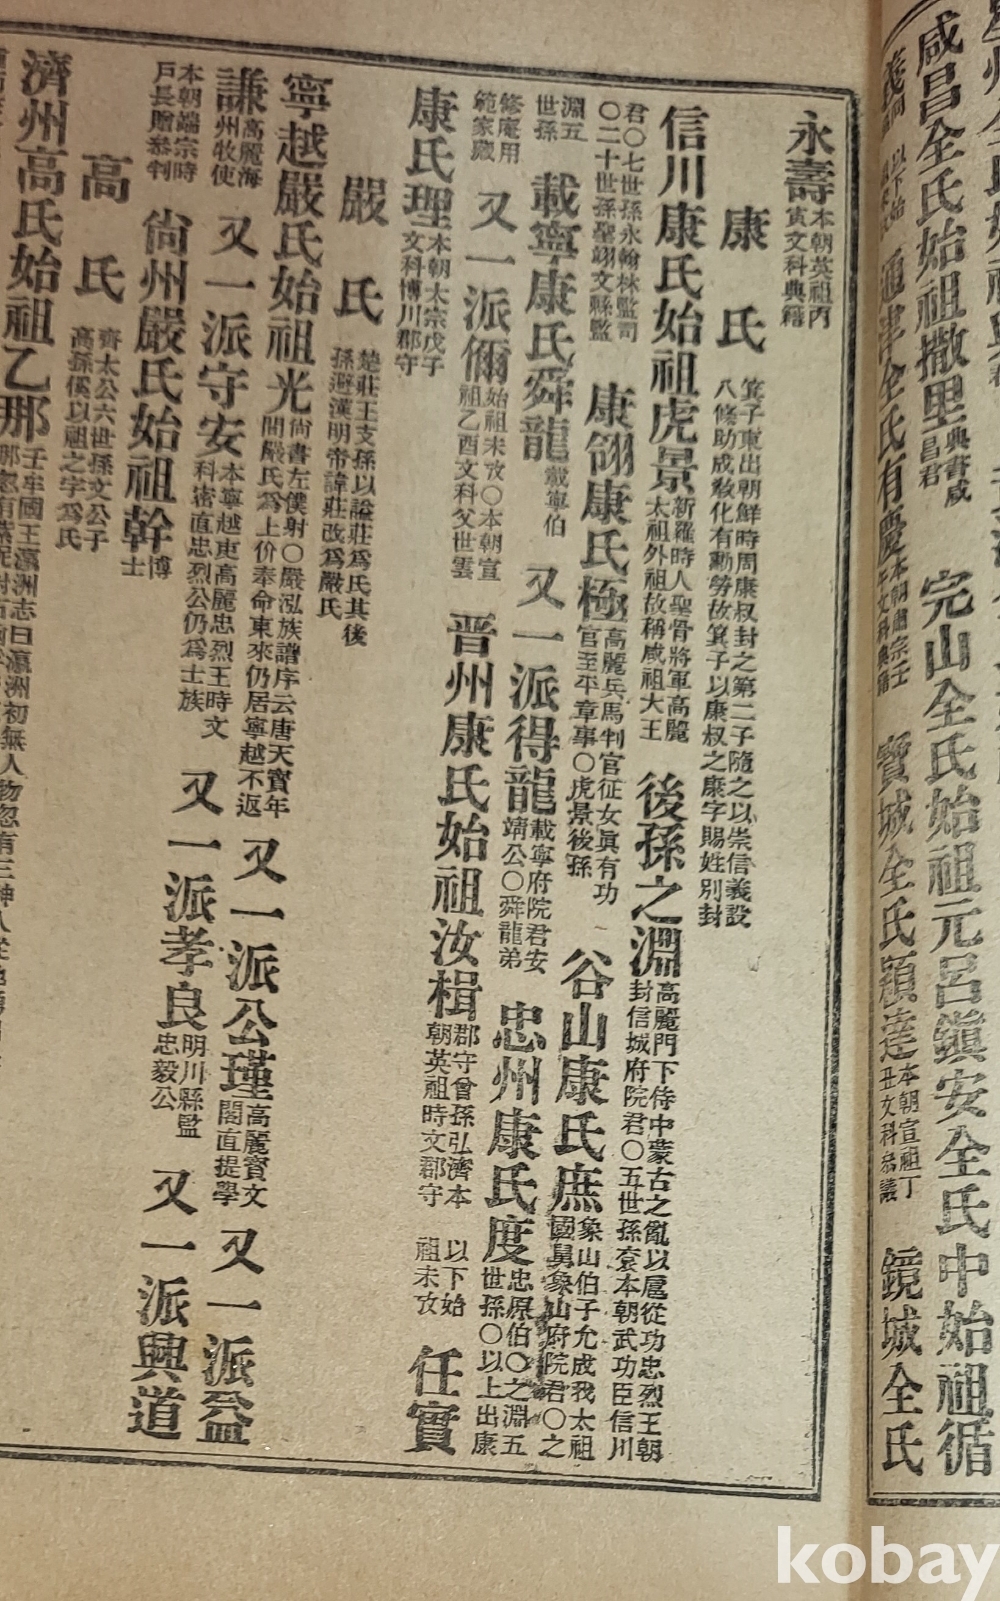 咸昌全氏始祖撒里典書咸昌君 完山全氏始祖元呂鎭安全氏中始祖循
通津全氏有慶 寶城全氏穎達本朝宣祖丁丑文科叅議 鏡城全氏
永壽本朝英祖丙寅文科典籍
康氏箕子東出朝鮮時周康叔封之第二子隨之以崇信義設八條助成敎化有勳勞故箕子以康叔之康字賜姓別封
信川康氏始祖虎景新羅時人聖骨將軍高麗太祖外祖故稱咸祖大王 後孫之淵高麗門下侍中蒙古之亂以扈從功忠烈王朝封信城府院君〇五世孫袞本朝武功臣信川
君〇七世孫永翰林監司〇二十世孫聖翊文縣監 康翎康氏極高麗兵馬判官征女眞有功官至平章事〇虎景後孫 谷山康氏庶象山伯子允成我太祖國舅象山府院君〇之
淵五世孫 載寧康氏舜龍載寧伯 又一派得龍載寧府院君安靖公〇舜龍弟 忠州康氏度忠原伯〇之淵五世孫〇以上出康
修庵用範家藏 又一派儞始祖未攷〇本朝宣祖乙酉文科父世雲 晋州康氏始祖汝楫郡守曾孫弘濟本朝英祖時文郡守 以下始祖未攷 任實
康氏理本朝太宗戊子文科博川郡守
嚴氏楚莊王支孫以諡莊爲氏其後孫避漢明帝諱莊改爲嚴氏
寧越嚴氏始祖光尙書左僕射〇嚴泓族譜序云唐天寶年間嚴氏爲上价奉命東來仍居寧越不返 又一派公瑾高麗寶文閣直提學 又一派益
謙高麗海州牧使 又一派守安本寧越吏高麗忠烈王時文科密直忠烈公仍爲士族 又一派孝良明川縣監忠毅公 又一派興道
本朝端宗時戶長贈叅判 尙州嚴氏始祖幹博士
高氏齊太公六世孫文公子高孫傒以祖之字爲氏
濟州高氏始祖乙那
kobay